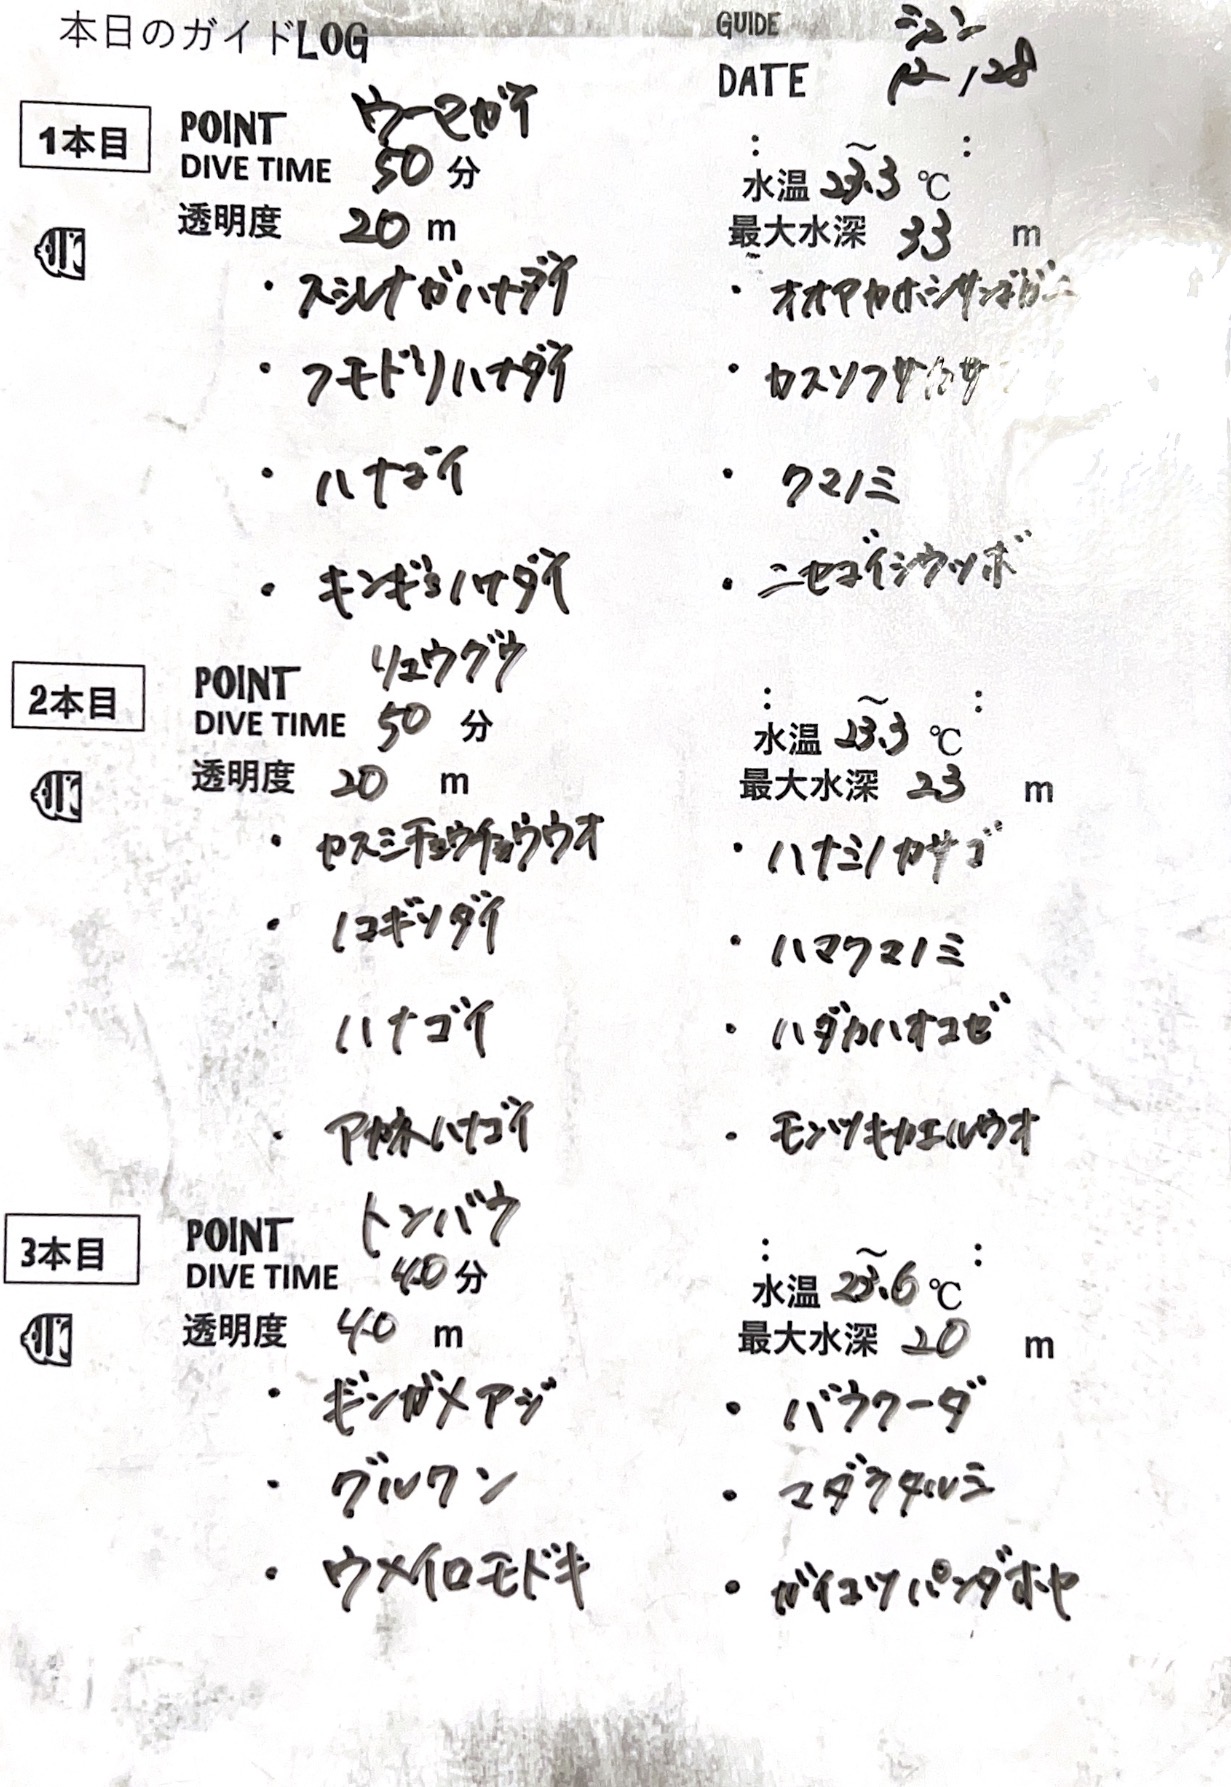 本日のガイドLOG
GUIDE ジュン
DATE 12/28
1本目
POINT ウーマガイ
DIVE TIME 50分
: ～ :
水温 23.3℃
透明度 20m
最大水深 33m
・スジナガハナダイ
・オオアカホシサンゴガニ
・フモドリハナダイ
・ハナゴイ
・クマノミ
・キンギョハナダイ
・ニセゴイシウツボ
2本目
POINT リュウグウ
DIVE TIME 50分
: ～ :
水温 23.3℃
透明度 20m
最大水深 23m
・ヤスジチョウチョウウオ
・ハナミノカサゴ
・ノコギリダイ
・ハマクマノミ
・ハナゴイ
・ハダカハオコゼ
・アカネハナゴイ
・モンツキカエルウオ
3本目
POINT トンバラ
DIVE TIME 40分
: ～ :
水温 23.6℃
透明度 40m
最大水深 20m
・ギンガメアジ
・バラクーダ
・グルクン
・マダラタルミ
・ウメイロモドキ
・ガイコツパンダホヤ